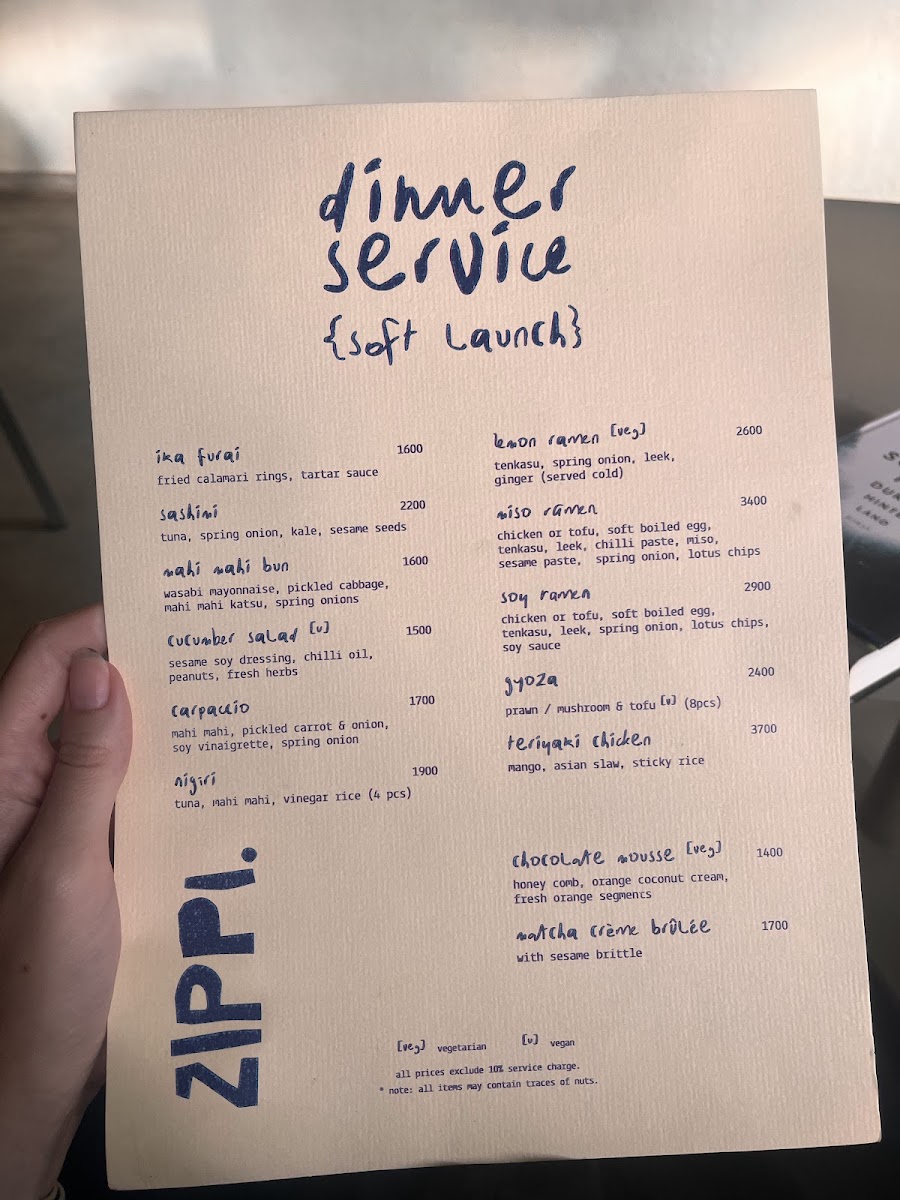 dinner
service
{soft launch}
ika furai 1600
fried calamari rings, tartar sauce
sashimi 2200
tuna, spring onion, kale, sesame seeds
mahi mahi bun 1600
wasabi mayonnaise, pickled cabbage,
mahi mahi katsu, spring onions
cucumber salad [v] 1500
sesame soy dressing, chilli oil,
peanuts, fresh herbs
carpaccio 1700
mahi mahi, pickled carrot & onion,
soy vinaigrette, spring onion
nigiri 1900
tuna, mahi mahi, vinegar rice (4 pcs)
lemon ramen [veg] 2600
tenkasu, spring onion, leek,
ginger (served cold)
miso ramen 3400
chicken or tofu, soft boiled egg,
tenkasu, leek, chilli paste, miso,
sesame paste, spring onion, lotus chips
soy ramen 2900
chicken or tofu, soft boiled egg,
tenkasu, leek, spring onion, lotus chips,
soy sauce
gyoza 2400
prawn / mushroom & tofu [v] (8pcs)
teriyaki chicken 3700
mango, asian slaw, sticky rice
chocolate mousse [veg] 1400
honey comb, orange coconut cream,
fresh orange segments
matcha crème brûlée 1700
with sesame brittle
ZIPPI.
[veg] vegetarian [v] vegan
all prices exclude 10% service charge.
* note: all items may contain traces of nuts.
LAND